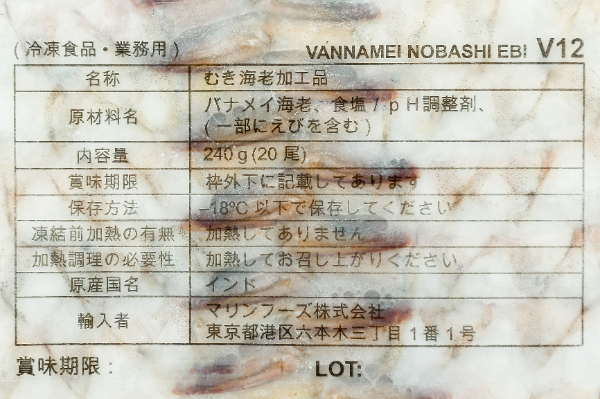 (冷凍食品・業務用) VANNAMEI NOBASHI EBI V12
名称 むき海老加工品
原材料名 バナメイ海老、食塩/pH調整剤、
(一部にえびを含む)
内容量 240g(20尾)
賞味期限 枠外下に記載してあります
保存方法 -18℃以下で保存してください
凍結前加熱の有無 加熱してありません
加熱調理の必要性 加熱してお召し上がりください
原産国名 インド
輸入者 マリンフーズ株式会社
東京都港区六本木三丁目1番1号
賞味期限: LOT: